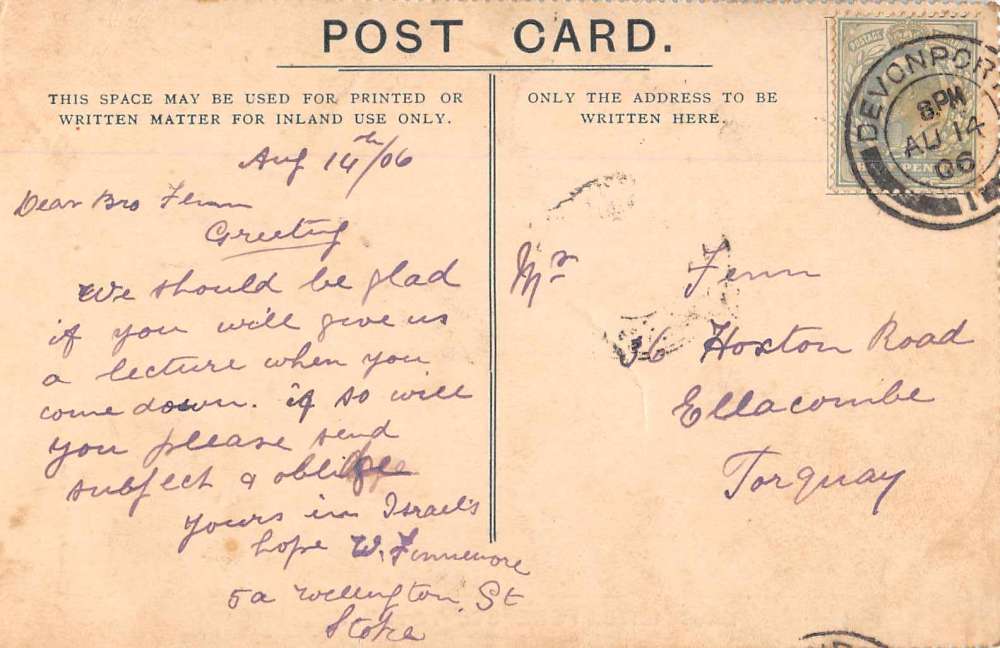 POST CARD.
THIS SPACE MAY BE USED FOR PRINTED OR
WRITTEN MATTER FOR INLAND USE ONLY.
ONLY THE ADDRESS TO BE
WRITTEN HERE.
POSTAGE
DEVONPORT
8PM
AU 14
06
1
Aug 14th/06
Dear Bro Fenn
Greeting
We should be glad
if you will give us
a lecture when you
come down. if so will
you please send
subject & oblige
yours in Israel's
hope W. Finnemore
5a Wellington St
Stoke
Mr Fenn
36 Hoxton Road
Ellacombe
Torquay